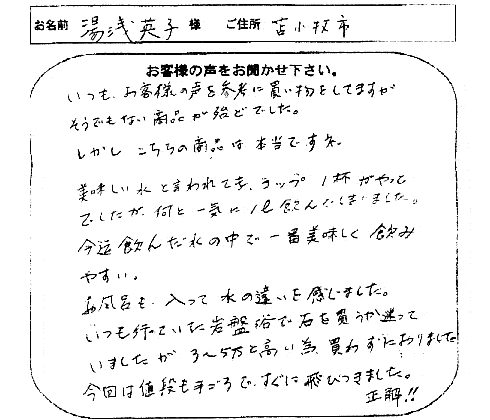 お名前 湯浅英子 様 ご住所 苫小牧市
お客様の声をお聞かせ下さい。
いつも、お客様の声を参考に買い物をしてますが
そうでもない商品が殆どでした。
しかし こちらの商品は本当ですネ。
美味しい水と言われても、コップ 1杯がやっと
でしたが、何と一気に 1ℓ飲んでしまいました。
今迄飲んだ水の中で一番美味しく飲み
やすい。
お風呂も、入って水の違いを感じました。
いつも行っていた岩盤浴で石を買うか迷って
いましたが 3〜5万と高い為、買わずにおりました
今回は値段も手ごろで、すぐに飛びつきました。
正解!!